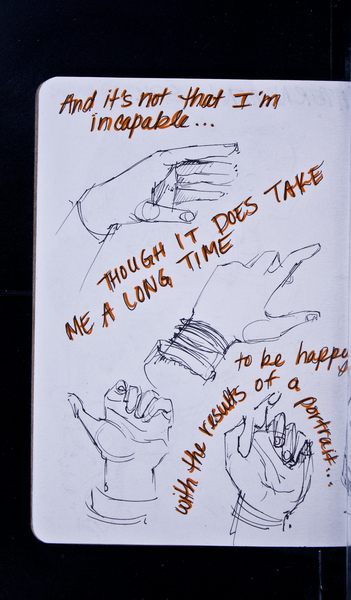 And it's not that I'm
incapable...
THOUGH IT DOES TAKE
ME A LONG TIME
to be happy
with the results of a portrait...